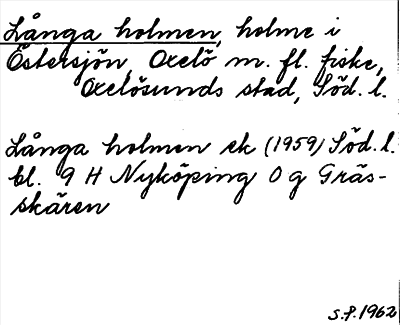 Långa holmen, holme i
Östersjön, Oxelö m. fl. fiske,
Oxelösunds stad, Söd. l.
Långa holmen ek (1959) Söd. l.
bl. 9 H Nyköping O g Gräs-
skären
S.P. 1962